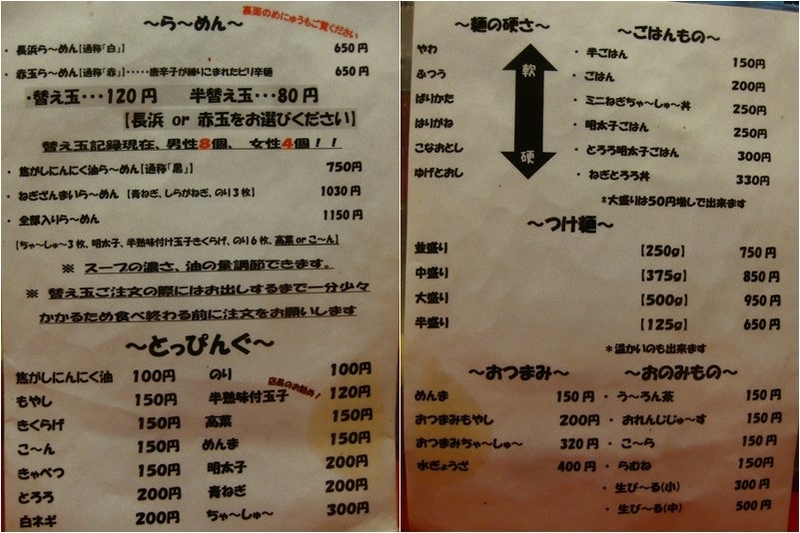 裏面のめにゅうもご覧ください
～ら～めん～
・長浜ら～めん【通称「白」】 650円
・赤玉ら～めん【通称「赤」】・・・・・唐辛子が練りにまれたピリ辛麺 650円
・替え玉・・・120円 半替え玉・・・80円
【長浜 or 赤玉をお選びください】
替え玉記録現在、男性8個、 女性4個！！
・焦がしにんにく油ら～めん【通称「黒」】 750円
・ねぎざんまいら～めん 【青ねぎ、しらがねぎ、のり3枚】 1030円
・全部入りら～めん 1150円
【ちゃ～しゅ～3枚、明太子、半熟味付け玉子きくらげ、のり6枚、高菜 or こ～ん】
※ スープの濃さ、油の量調節できます。
※ 替え玉ご注文の際にはお出しするまで一分少々
かかるため食べ終わる前に注文をお願いします
～とっぴんぐ～
焦がしにんにく油 100円 のり 100円
店長のお勧め！
もやし 150円 半熟味付玉子 120円
きくらげ 150円 高菜 150円
こ～ん 150円 めんま 150円
きゃべつ 150円 明太子 200円
とろろ 200円 青ねぎ 200円
白ネギ 200円 ちゃ～しゅ～ 300円
～麺の硬さ～
やわ
ふつう
ばりかた
はりがね
こなおとし
ゆげとおし
軟
硬
～ごはんもの～
・半ごはん 150円
・ごはん 200円
・ミニねぎちゃ～しゅ～丼 250円
・明太子ごはん 250円
・とろろ明太子ごはん 300円
・ねぎとろろ丼 330円
＊大盛りは50円増しで出来ます
～つけ麺～
並盛り 【250g】 750円
中盛り 【375g】 850円
大盛り 【500g】 950円
半盛り 【125g】 650円
＊温かいのも出来ます
～おつまみ～
めんま 150円
おつまみもやし 200円
おつまみちゃ～しゅ～ 320円
水ぎょうざ 400円
～おのみもの～
・う～ろん茶 150円
・おれんじじゅ～す 150円
・こ～ら 150円
・らむね 150円
・生び～る(小) 300円
・生び～る(中) 500円